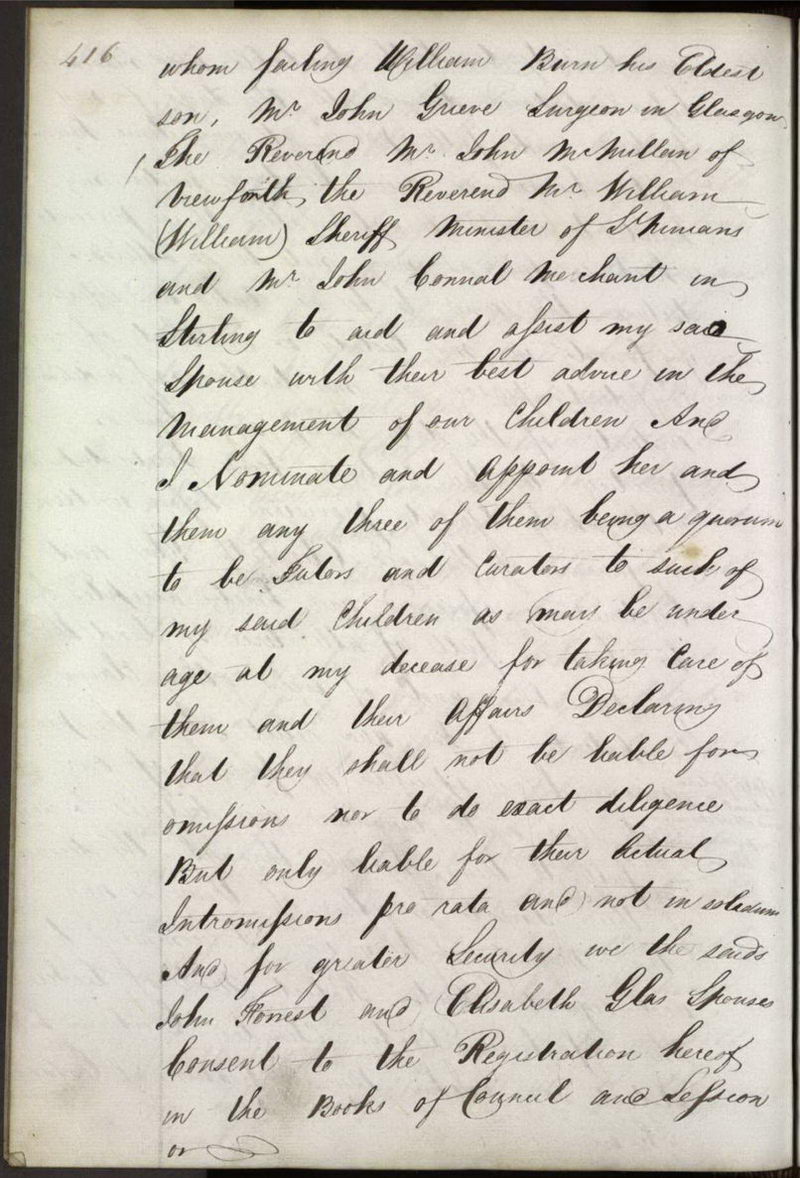 416
whom failing William Burn his Eldest
son, Mr John Grieve Surgeon in Glasgow
The Reverend Mr John McMillan of
Viewforth, the Reverend Mr William
(William) Sheriff Minister of St Ninians
and Mr John Connal Merchant in
Stirling to aid and assist my said
Spouse with their best advice in the
Management of our Children And
I Nominate and appoint her and
them any three of them being a quorum
to be Tutors and Curators to such of
my said Children as may be under
age at my decease for taking Care of
them and their affairs Declaring
that they shall not be liable for
omissions nor to do exact diligence
But only liable for their Actual
Intromissions pro rata and not in solidum
And for greater Security we the saids
John Forrest and Elisabeth Glas Spouses
Consent to the Registration hereof
in the Books of Council and Session
or